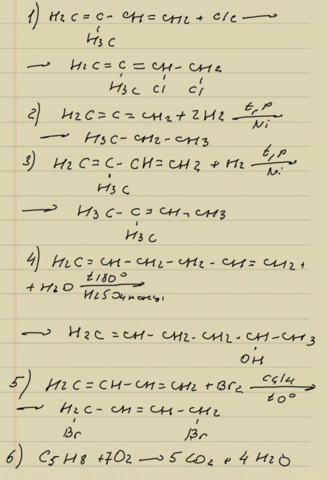 1) H2C=C-CH=CH2 + Cl2 ⟶
H3C
⟶ H2C=C=CH-CH2
H3C Cl Cl
2) H2C=C=CH2+2H2 t,P
Ni
⟶ H3C-CH2-CH3
3) H2C=C-CH=CH2+H2 t,P
H3C Ni
⟶ H3C-C=CH-CH3
H3C
4) H2C=CH-CH2-CH2-CH=CH2+
+H2O t180°
H2SO4
⟶ H2C=CH-CH2-CH2-CH-CH3
OH
5) H2C=CH-CH=CH2+Br2 CCl4
⟶ H2C-CH=CH-CH2 t0°
Br Br
6) C5H8+7O2⟶5CO2+4H2O